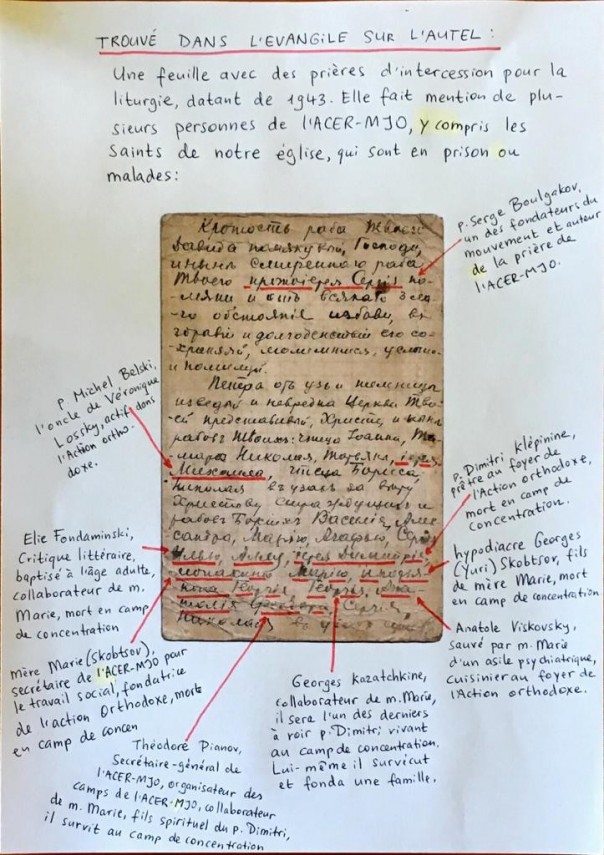 TROUVÉ DANS L'EVANGILE SUR L'AUTEL :
Une feuille avec des prières d'intercession pour la
liturgie, datant de 1943. Elle fait mention de plu-
sieurs personnes de l'ACER-MJO, y compris les
Saints de notre église, qui sont en prison ou
malades :
p. Serge Boulgakov,
un des fondateurs du
mouvement et auteur
de la prière de
l'ACER-MJO.
Кротость раба Твоего
Давида помянувый, Господи,
и нынѣ смиреннаго раба
Твоего протоіерея Сергія по-
-мяни и отъ всякаго
-го обстоянія избави, въ
здравіи и долгоденствіи его со-
-храняй, молимтися, услыши
и помилуй.
Петра отъ узъ и темницы
изведый и невредна Церкви Тво-
-ей представивый, Христе, и нынѣ
рабовъ Твоихъ: чтеца Іоанна,
Николая, іерея
Михаила, чтеца Бориса
Николая въ узахъ за вѣру
Христову
рабовъ Божіихъ Василія, Але-
ксандра, Марію, Агафью,
Илью, іерея Димитрія
монахиню Марію, иподія-
кона Георгія, Георгія, Ана-
толія Феодора, Сергія,
Николая въ
p Michel Belski,
l'oncle de Véronique
Lossky, actif dans
l'Action ortho-
doxe.
p. Dimitri Klépinine,
prêtre au foyer de
l'Action orthodoxe,
mort en camp de
concentration.
Elie Fondaminski,
Critique littéraire,
baptisé à l'âge adulte,
collaborateur de m.
Marie, mort en camp
de concentration
hypodiacre Georges
(Yuri) Skobtsov, fils
de mère Marie, mort
en camp de concentration
mère Marie (Skobtsov),
secrétaire de l'ACER-MJO pour
le travail social, fondatrice
de l'action Orthodoxe, morte
en camp de concen
Anatole Viskovsky,
sauvé par m. Marie
d'un asile psychiatrique,
cuisinier au foyer de
l'Action orthodoxe.
Georges Kazatchkine,
collaborateur de m. Marie,
il sera l'un des derniers
à voir p. Dimitri vivant
au camp de concentration.
Lui-même il survécut
et fonda une famille.
Théodore Pianov,
Secrétaire-général de
l'ACER-MJO, organisateur des
camps de l'ACER-MJO, collaborateur
de m. Marie, fils spirituel du p. Dimitri,
il survit au camp de concentration